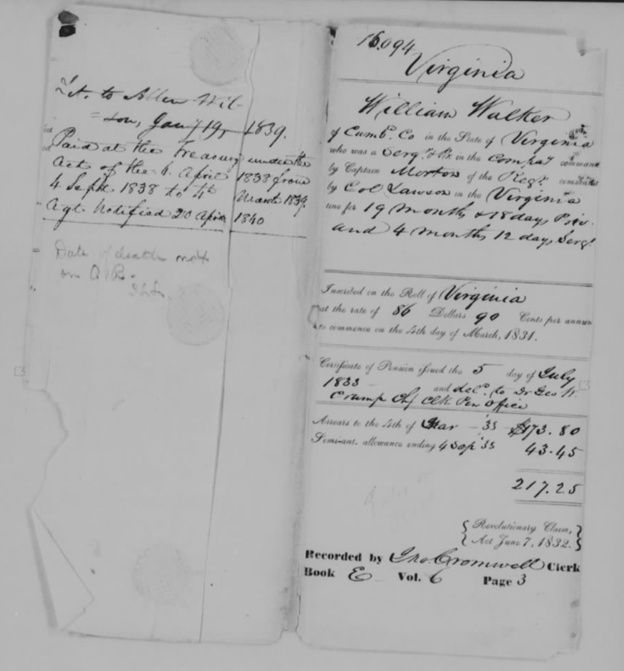 Let. to Allen Wil-
=son, Jany 19, 1839.
Paid at the Treasury under the
Act of the 6 April 1838 from
4 Sept. 1838 to 4th March 1839
Agt. Notified 20 April 1840
Date of death not
on Q. R.
16.094
Virginia
William Walker
of Cumb. Co. in the State of Virginia
who was a Sergt in the company commanded
by Captain Morton of the Regt commanded
by Col Lawson in the Virginia
line for 19 months & 18 days Priv.
and 4 months 12 days Sergt
Inscribed on the Roll of Virginia
at the rate of 86 Dollars 90 Cents per annum
to commence on the 4th day of March, 1831.
Certificate of Pension issued the 5 day of July
1833 and del. to Dr Geo W.
Crump Chf Clk Pen Office
Arrears to the 4th of Mar '33 $173.80
Semi-anl. allowance ending 4 Sep '33 43.45
217.25
Revolutionary Claim,
Act June 7, 1832.
Recorded by Jno Cromwell Clerk
Book E Vol. 6 Page 3